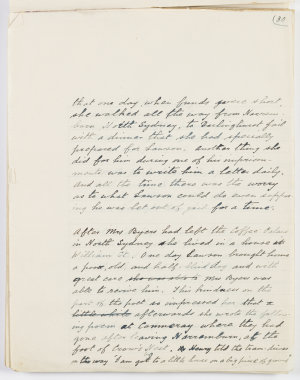 (30
that one day, when funds were short,
she walked all the way from Narrem-
burn, North Sydney, to Darlinghurst Gaol
with a dinner that she had specially
prepared for Lawson. Another thing she
did for him during one of his imprison-
ments was to write him a letter daily.
And all the time there was the worry
as to what Lawson could do even suppos
ing he was let out of gaol for a time.
After Mrs Byers had left the Coffee Palace
in North Sydney she lived in a house at
William St. One day Lawson brought home
a poor, old, and half blind dog and with
great care Mrs Byers was
able to revive him. This kindness on the
part of the poet so impressed her that
afterwards she wrote the follow-
ing poem at Cammeray where they had
gone after leaving Narremburn, at the
foot of Crow's Nest, as Henry told the tram driver
on the way "I am going to a little house on a big piece of ground